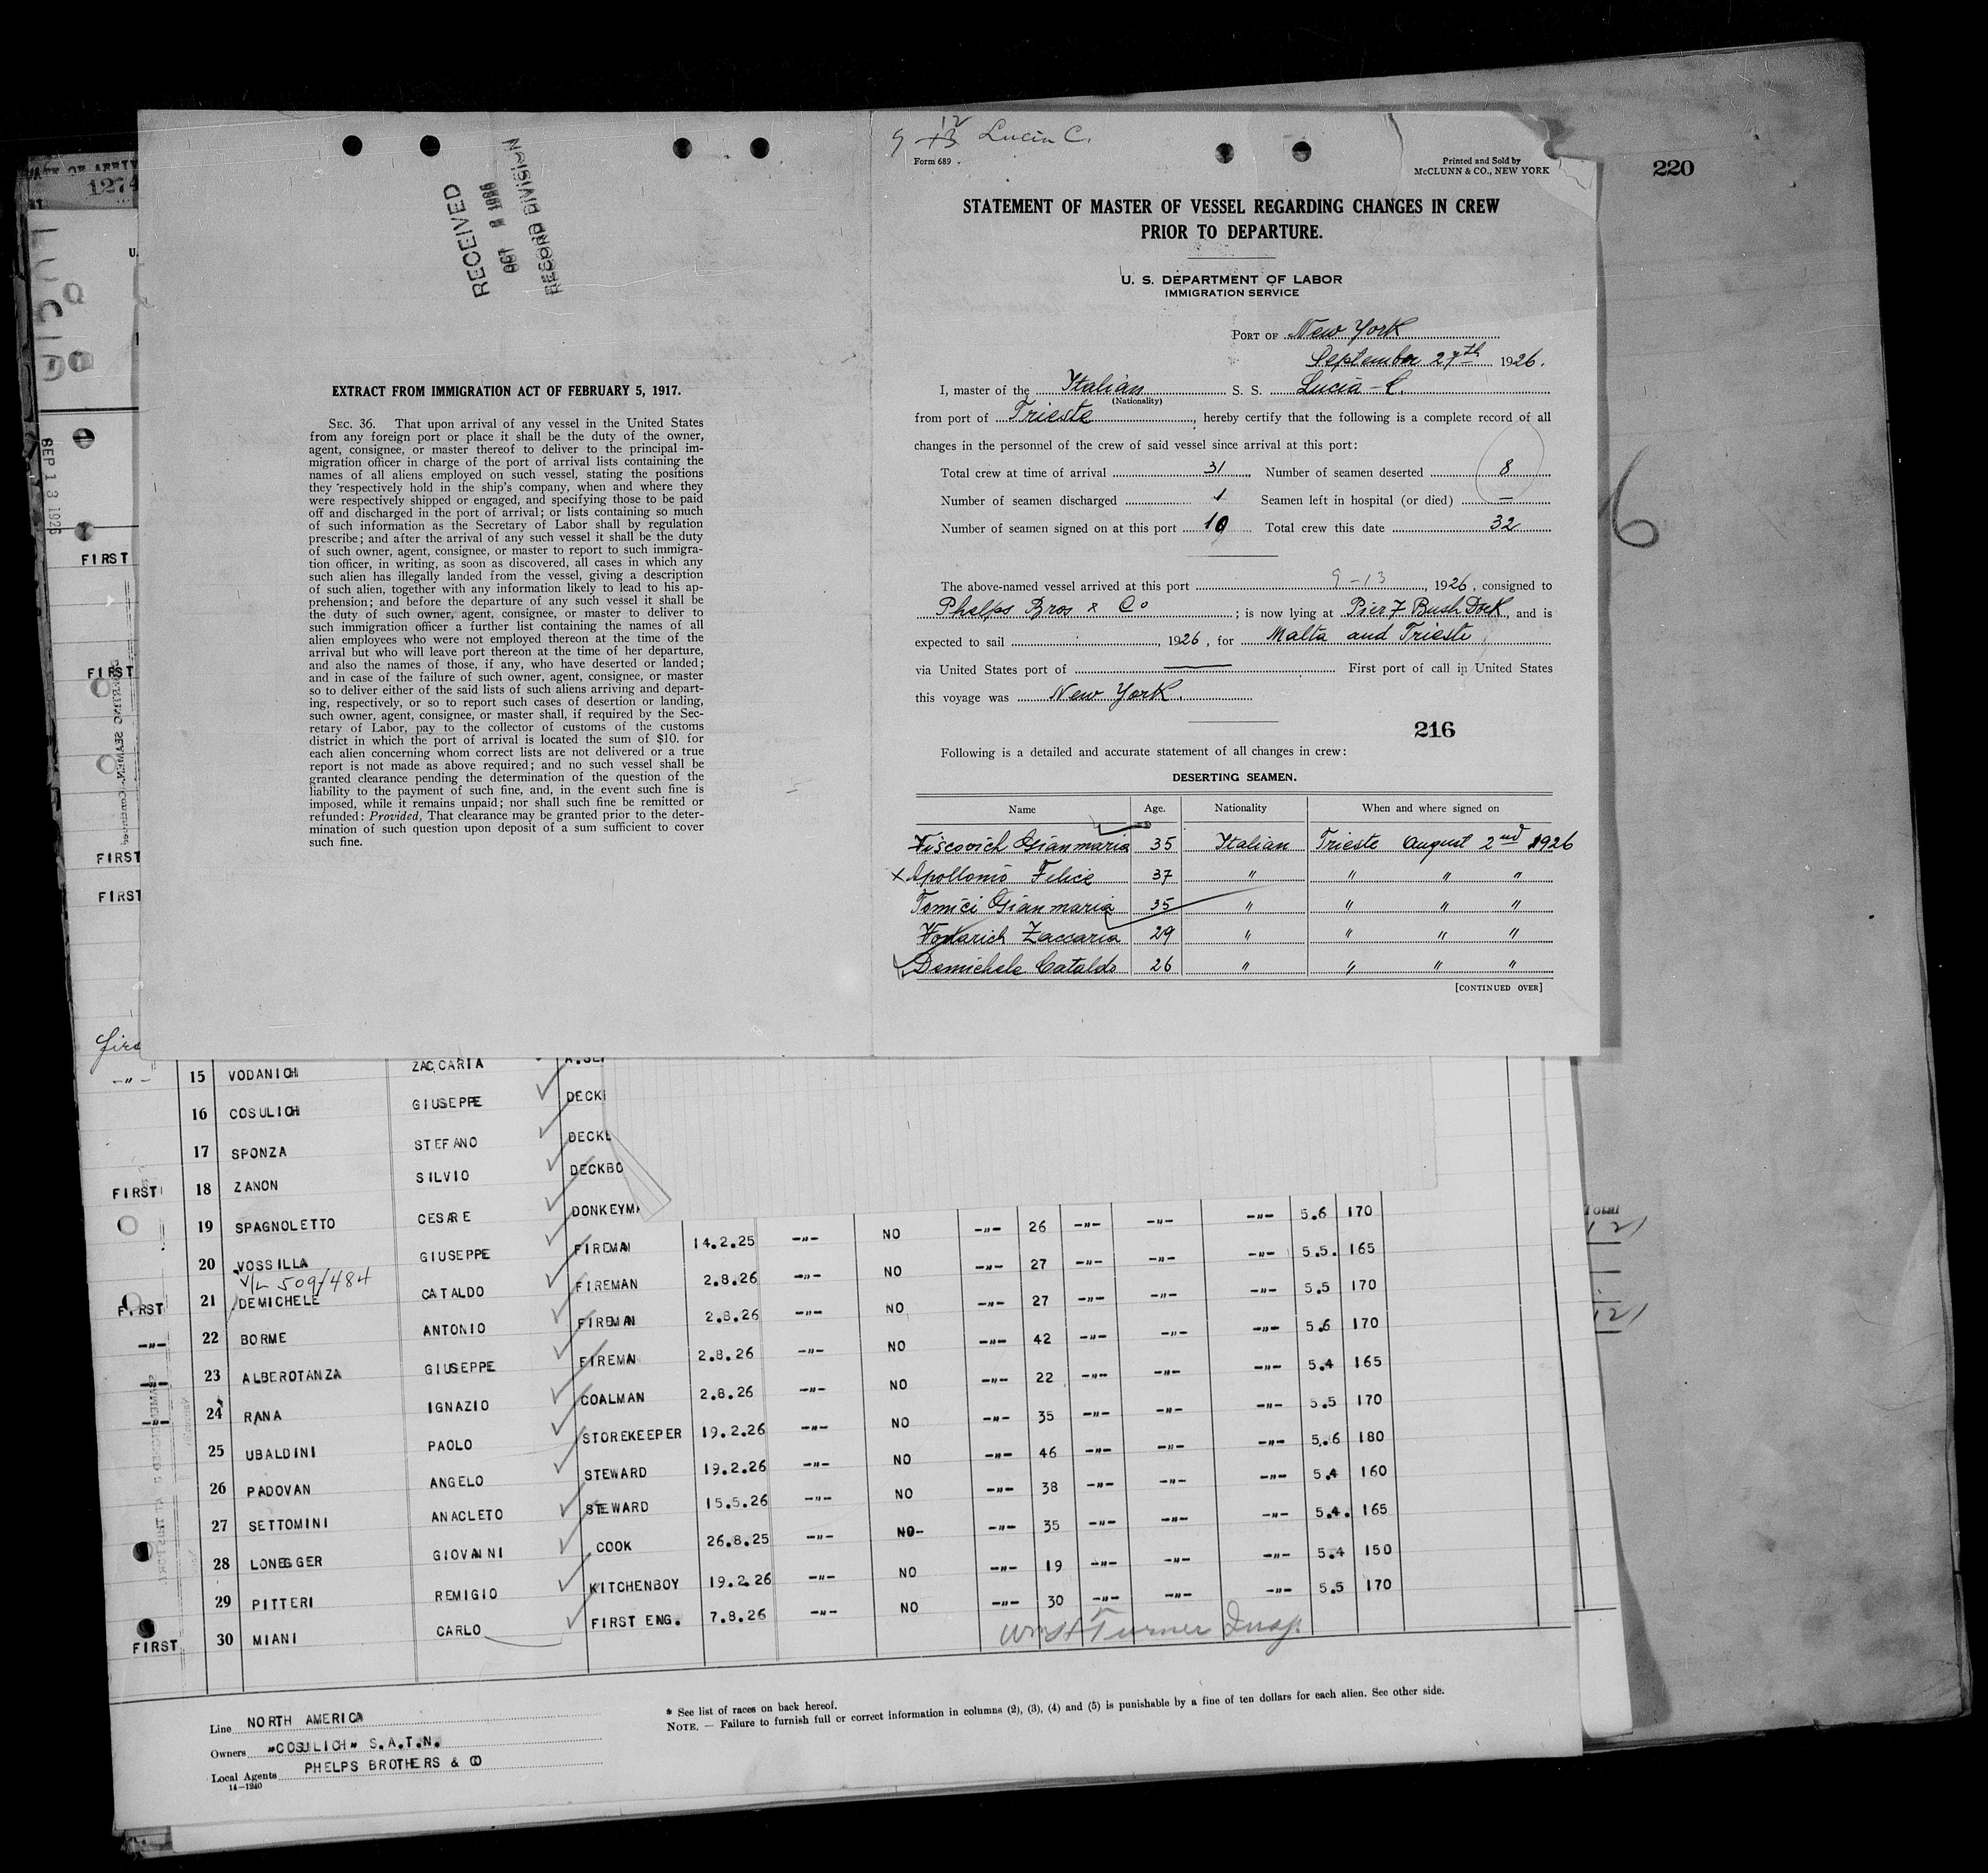 9 12 13 Lucia C.
Form 689.
Printed and Sold by
McCLUNN & CO., NEW YORK
220
STATEMENT OF MASTER OF VESSEL REGARDING CHANGES IN CREW
PRIOR TO DEPARTURE.
U. S. DEPARTMENT OF LABOR
IMMIGRATION SERVICE
PORT OF New York
September 27th 1926.
I, master of the Italian S. S. Lucia C.
(Nationality)
from port of Trieste, hereby certify that the following is a complete record of all
changes in the personnel of the crew of said vessel since arrival at this port:
Total crew at time of arrival 31 Number of seamen deserted 8
Number of seamen discharged 1 Seamen left in hospital (or died) —
Number of seamen signed on at this port 10 Total crew this date 32
The above-named vessel arrived at this port 9-13, 1926, consigned to
Phelps Bros & Co; is now lying at Pier 7 Bush Dock, and is
expected to sail , 1926, for Malta and Trieste
via United States port of — First port of call in United States
this voyage was New York.
216
Following is a detailed and accurate statement of all changes in crew:
DESERTING SEAMEN.
Name Age. Nationality When and where signed on
Viscovich Gianmaria 35 Italian Trieste August 2nd 1926
x Apollonio Felice 37 " " " "
Tomici Gianmaria 35 " " " "
Zaccaria 29 " " " "
Demichele Cataldo 26 " " " "
[CONTINUED OVER]
RECEIVED
OCT 8 1926
RECORD DIVISION
EXTRACT FROM IMMIGRATION ACT OF FEBRUARY 5, 1917.
SEC. 36. That upon arrival of any vessel in the United States
from any foreign port or place it shall be the duty of the owner,
agent, consignee, or master thereof to deliver to the principal im-
migration officer in charge of the port of arrival lists containing the
names of all aliens employed on such vessel, stating the positions
they respectively hold in the ship's company, when and where they
were respectively shipped or engaged, and specifying those to be paid
off and discharged in the port of arrival; or lists containing so much
of such information as the Secretary of Labor shall by regulation
prescribe; and after the arrival of any such vessel it shall be the duty
of such owner, agent, consignee, or master to report to such immigra-
tion officer, in writing, as soon as discovered, all cases in which any
such alien has illegally landed from the vessel, giving a description
of such alien, together with any information likely to lead to his ap-
prehension; and before the departure of any such vessel it shall be
the duty of such owner, agent, consignee, or master to deliver to
such immigration officer a further list containing the names of all
alien employees who were not employed thereon at the time of the
arrival but who will leave port thereon at the time of her departure,
and also the names of those, if any, who have deserted or landed;
and in case of the failure of such owner, agent, consignee, or master
so to deliver either of the said lists of such aliens arriving and depart-
ing, respectively, or so to report such cases of desertion or landing,
such owner, agent, consignee, or master shall, if required by the Sec-
retary of Labor, pay to the collector of customs of the customs
district in which the port of arrival is located the sum of $10. for
each alien concerning whom correct lists are not delivered or a true
report is not made as above required; and no such vessel shall be
granted clearance pending the determination of the question of the
liability to the payment of such fine, and, in the event such fine is
imposed, while it remains unpaid; nor shall such fine be remitted or
refunded: Provided, That clearance may be granted prior to the deter-
mination of such question upon deposit of a sum sufficient to cover
such fine.
1274
SEP 13 1926
FIRST
FIRST
FIRST
FIRST
-"- 15 VODANICH ZACCARIA
16 COSULICH GIUSEPPE DECK
17 SPONZA STEFANO DECK
FIRST 18 ZANON SILVIO DECKBO
19 SPAGNOLETTO CESARE DONKEYMA -"- 26 -"- -"- -"- 5.6 170
20 VOSSILLA GIUSEPPE FIREMAN 14.2.25 -"- NO -"- 27 -"- -"- -"- 5.5. 165
V/L 509/484
FIRST 21 DEMICHELE CATALDO FIREMAN 2.8.26 -"- NO -"- 27 -"- -"- -"- 5.5 170
-"- 22 BORME ANTONIO FIREMAN 2.8.26 -"- NO -"- 42 -"- -"- -"- 5.6 170
-"- 23 ALBEROTANZA GIUSEPPE FIREMAN 2.8.26 -"- NO -"- 22 -"- -"- -"- 5.4 165
-"- 24 RANA IGNAZIO COALMAN 2.8.26 -"- NO -"- 35 -"- -"- -"- 5.5 170
25 UBALDINI PAOLO STOREKEEPER 19.2.26 -"- NO -"- 46 -"- -"- -"- 5.6 180
26 PADOVAN ANGELO STEWARD 19.2.26 -"- NO -"- 38 -"- -"- -"- 5.4 160
27 SETTOMINI ANACLETO STEWARD 15.5.26 -"- NO -"- 35 -"- -"- -"- 5.4. 165
28 LONEGGER GIOVANNI COOK 26.8.25 -"- NO- -"- 19 -"- -"- -"- 5.4 150
29 PITTERI REMIGIO KITCHENBOY 19.2.26 -"- NO -"- 30 -"- -"- -"- 5.5 170
FIRST 30 MIANI CARLO FIRST ENG. 7.8.26 -"- NO
Turner Insp.
Line NORTH AMERICA
Owners "COSULICH" S.A.T.N.
Local Agents PHELPS BROTHERS & CO
14-1240
* See list of races on back hereof.
NOTE. — Failure to furnish full or correct information in columns (2), (3), (4) and (5) is punishable by a fine of ten dollars for each alien. See other side.